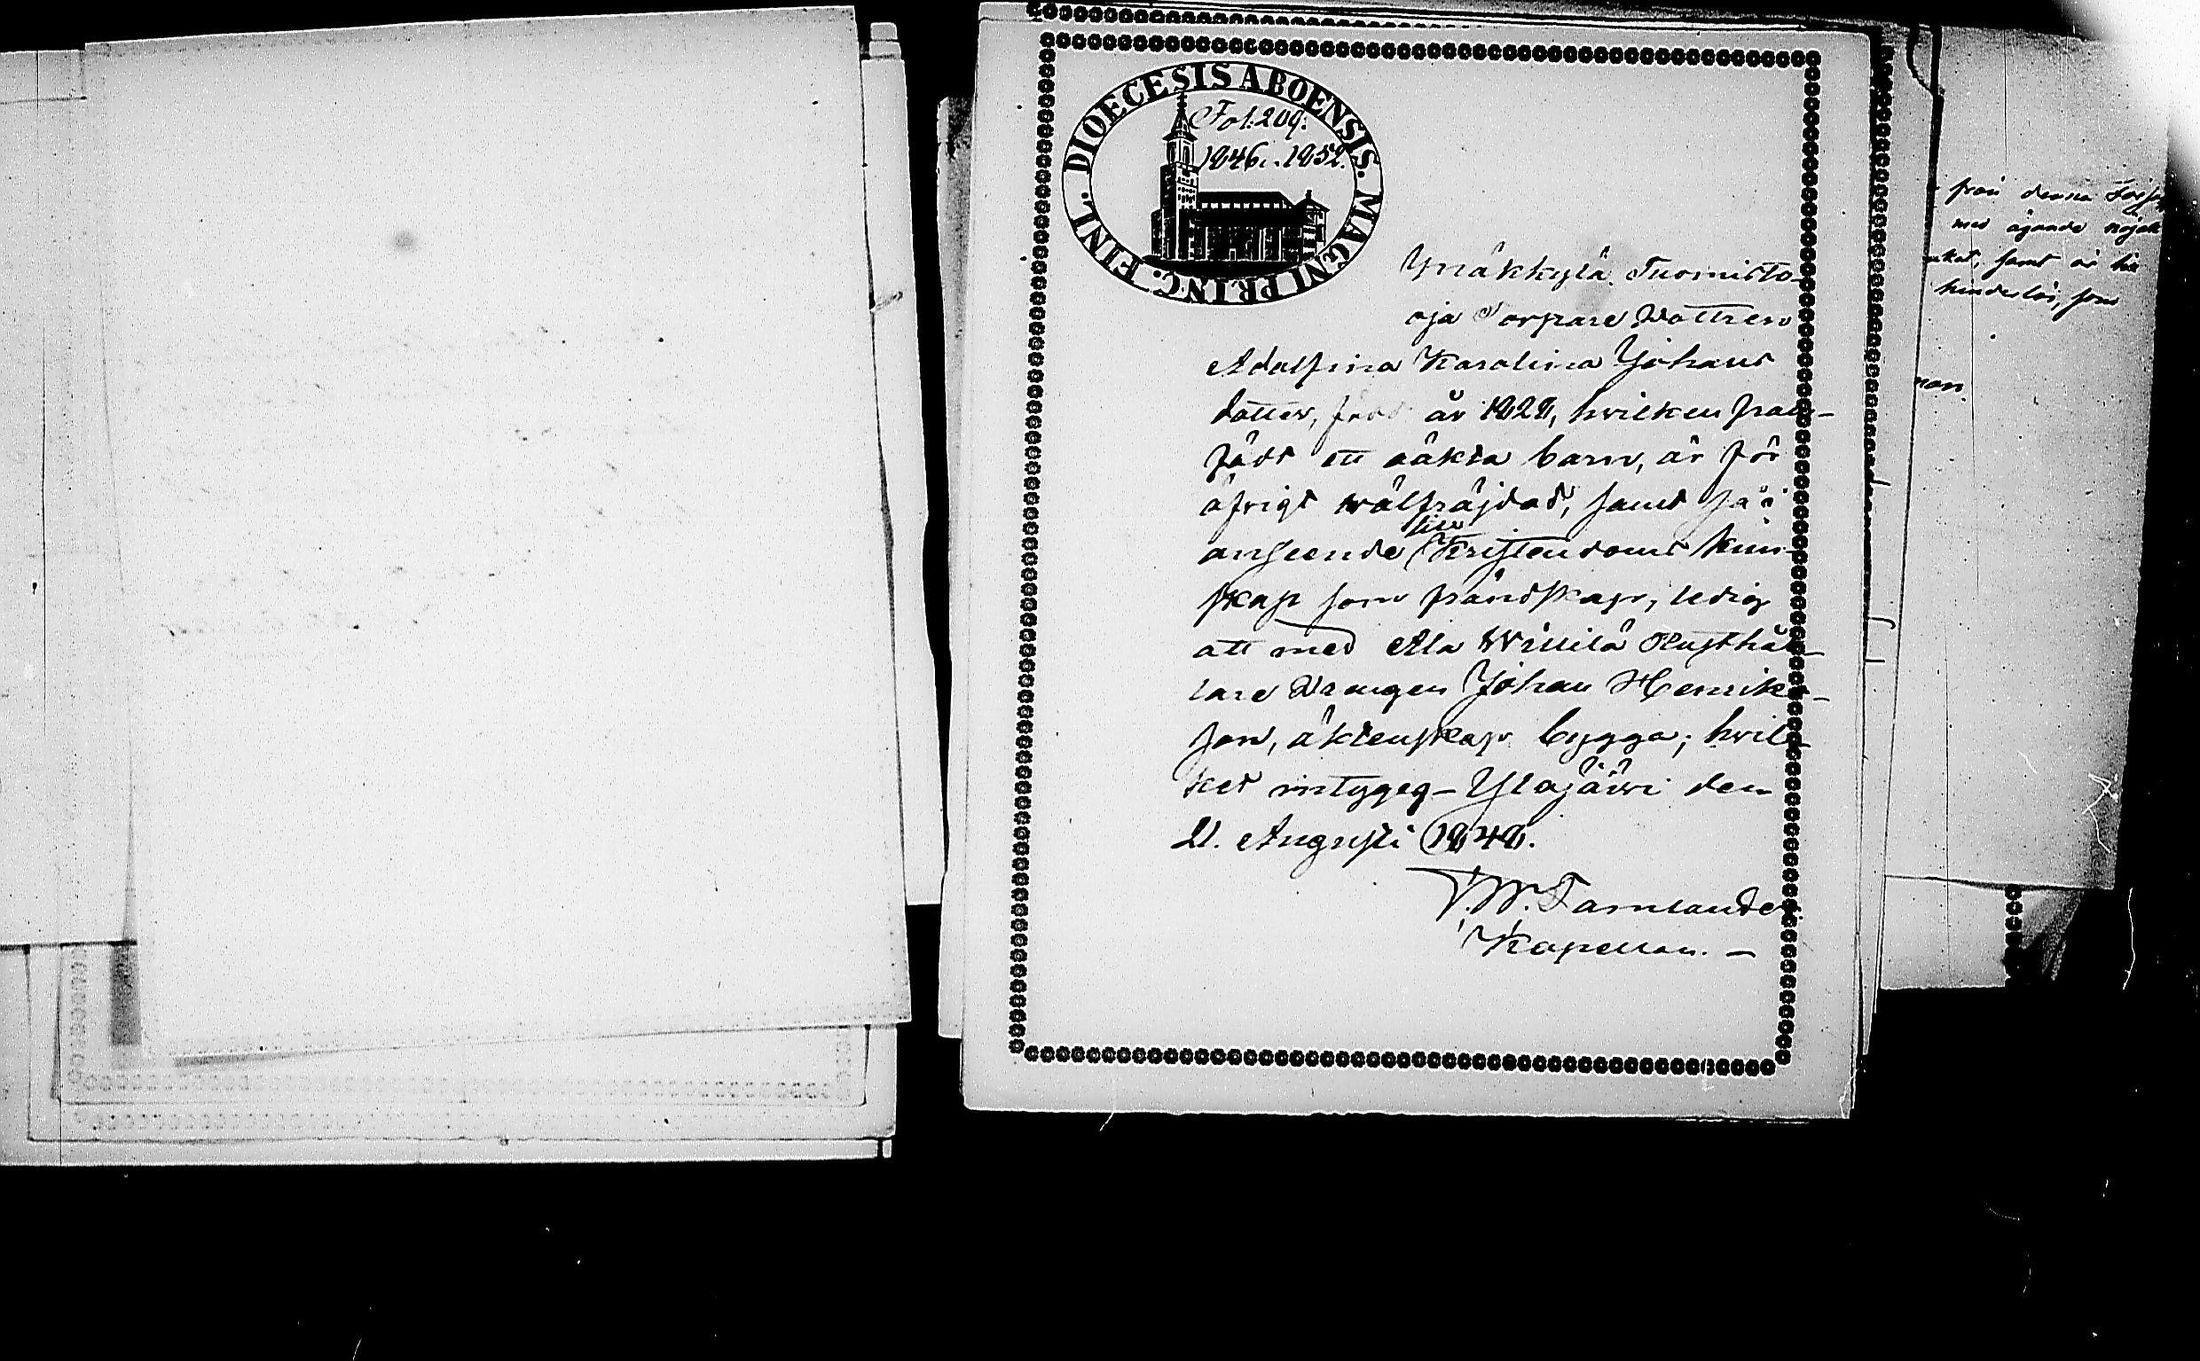 DIOECESIS ABOENSIS. MAGNI PRINC. FINL.
Fol: 209.
1846..1852.
Ynäkkylä Tuomisto-
oja Torpare Dottren
Adolfina Karolina Johans
dotter, född år 1828, hvilken fram-
födt ett oäkta barn, är för
öfrigt wälfräjdad, samt så i
anseende till Kristendoms kun-
skap som frändskap, ledig
att med Ala Willilä Rusthål-
lare Drengen Johan Henriks-
son, äktenskap bygga; hvil-
ket intygeg- Ylöjärvi den
21. Augusti 1848.
F. W. Tamlander
Kapellan. -
från denna Förs
med ägande
samt är
hinderlös, som